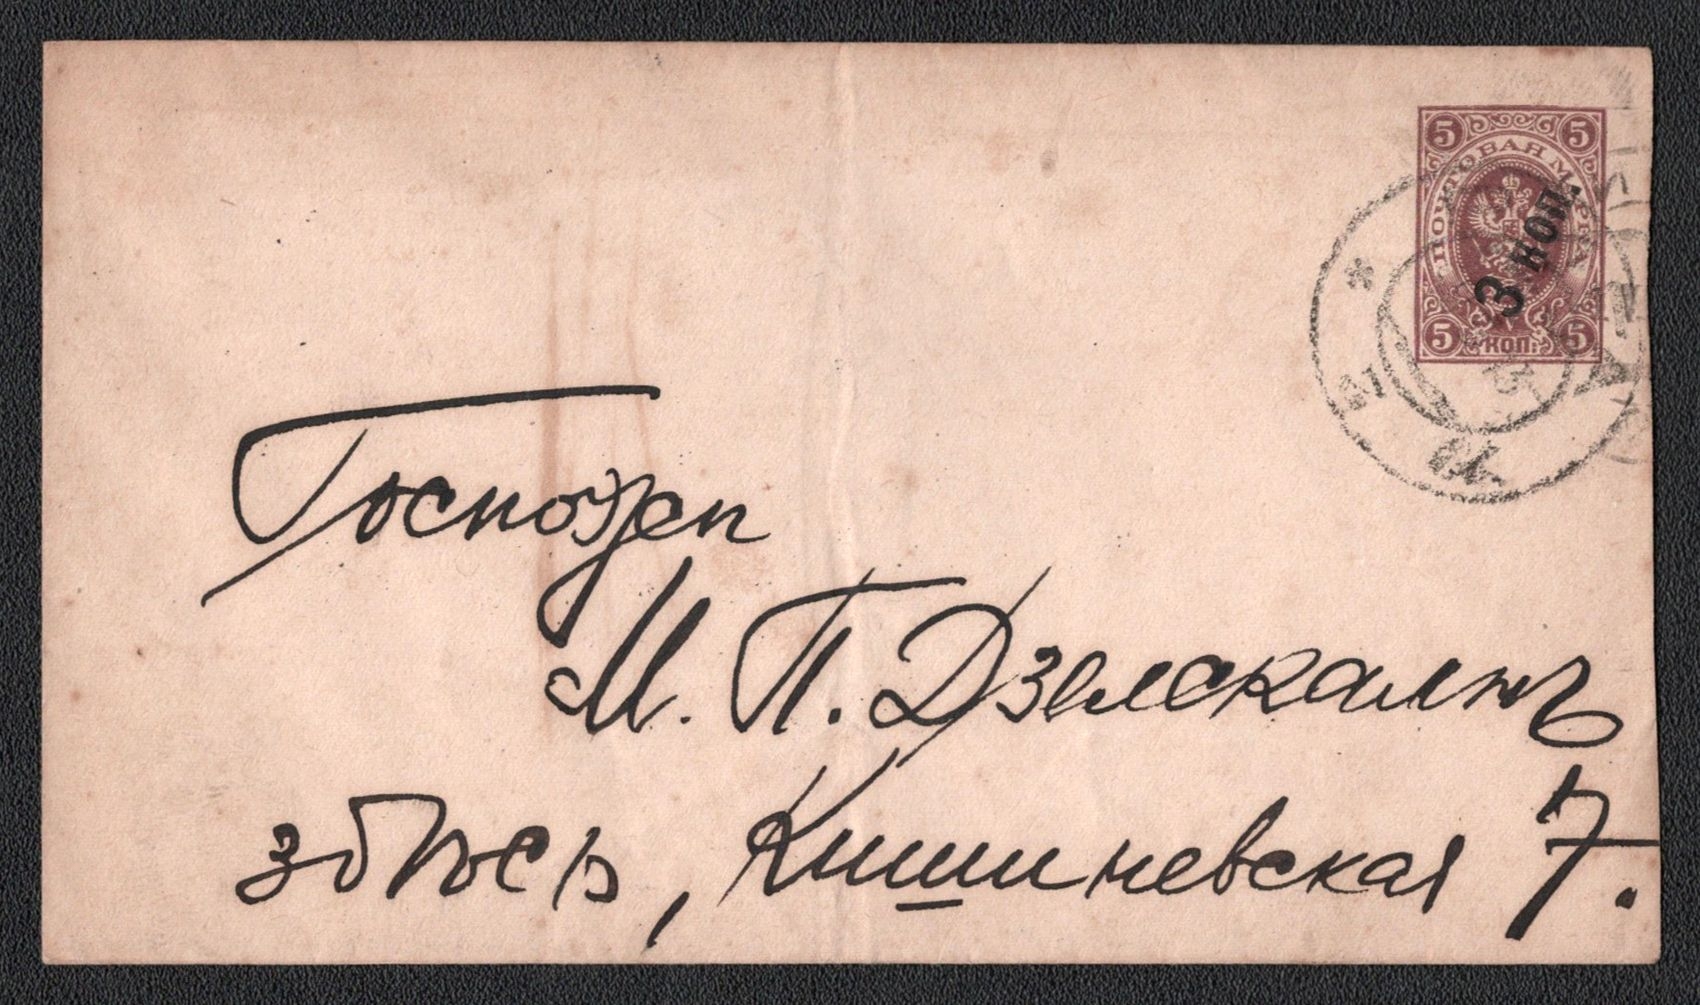 5 5
ПОЧТОВАЯ МАРКА
3 коп.
5 КОП. 5
Госпожѣ
М. П. Дзелскалнъ
здѣсь, Кишиневская 7.